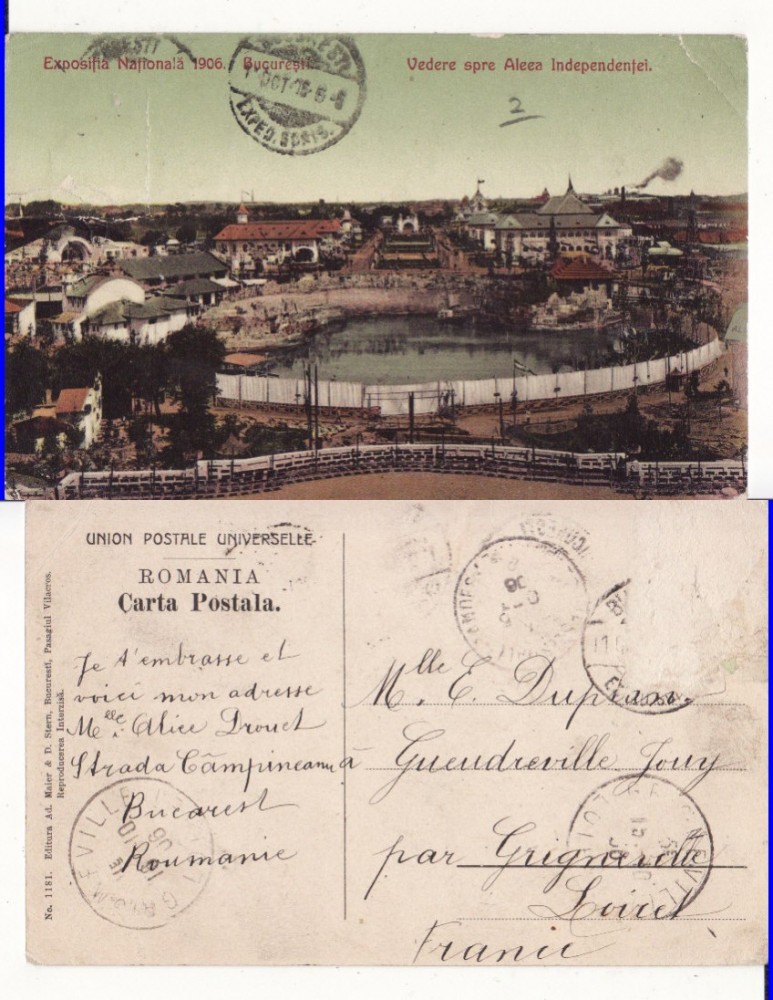 Expoziția Națională 1906. București.
Vedere spre Aleea Independenței.
2
EXPED. SCRIS.
UNION POSTALE UNIVERSELLE
ROMANIA
Carta Postala.
No. 1181. Editura Ad. Maier & D. Stern, Bucuresti, Pasagiul Vilacros.
Reproducerea Interzisă.
Je t'embrasse et
voici mon adresse
Mlle Alice Drouet
Strada Câmpineanu
Bucarest
Roumanie
Mlle. E. Dupian.
à Gueudreville Jouy
par Grigneville
Loiret
France